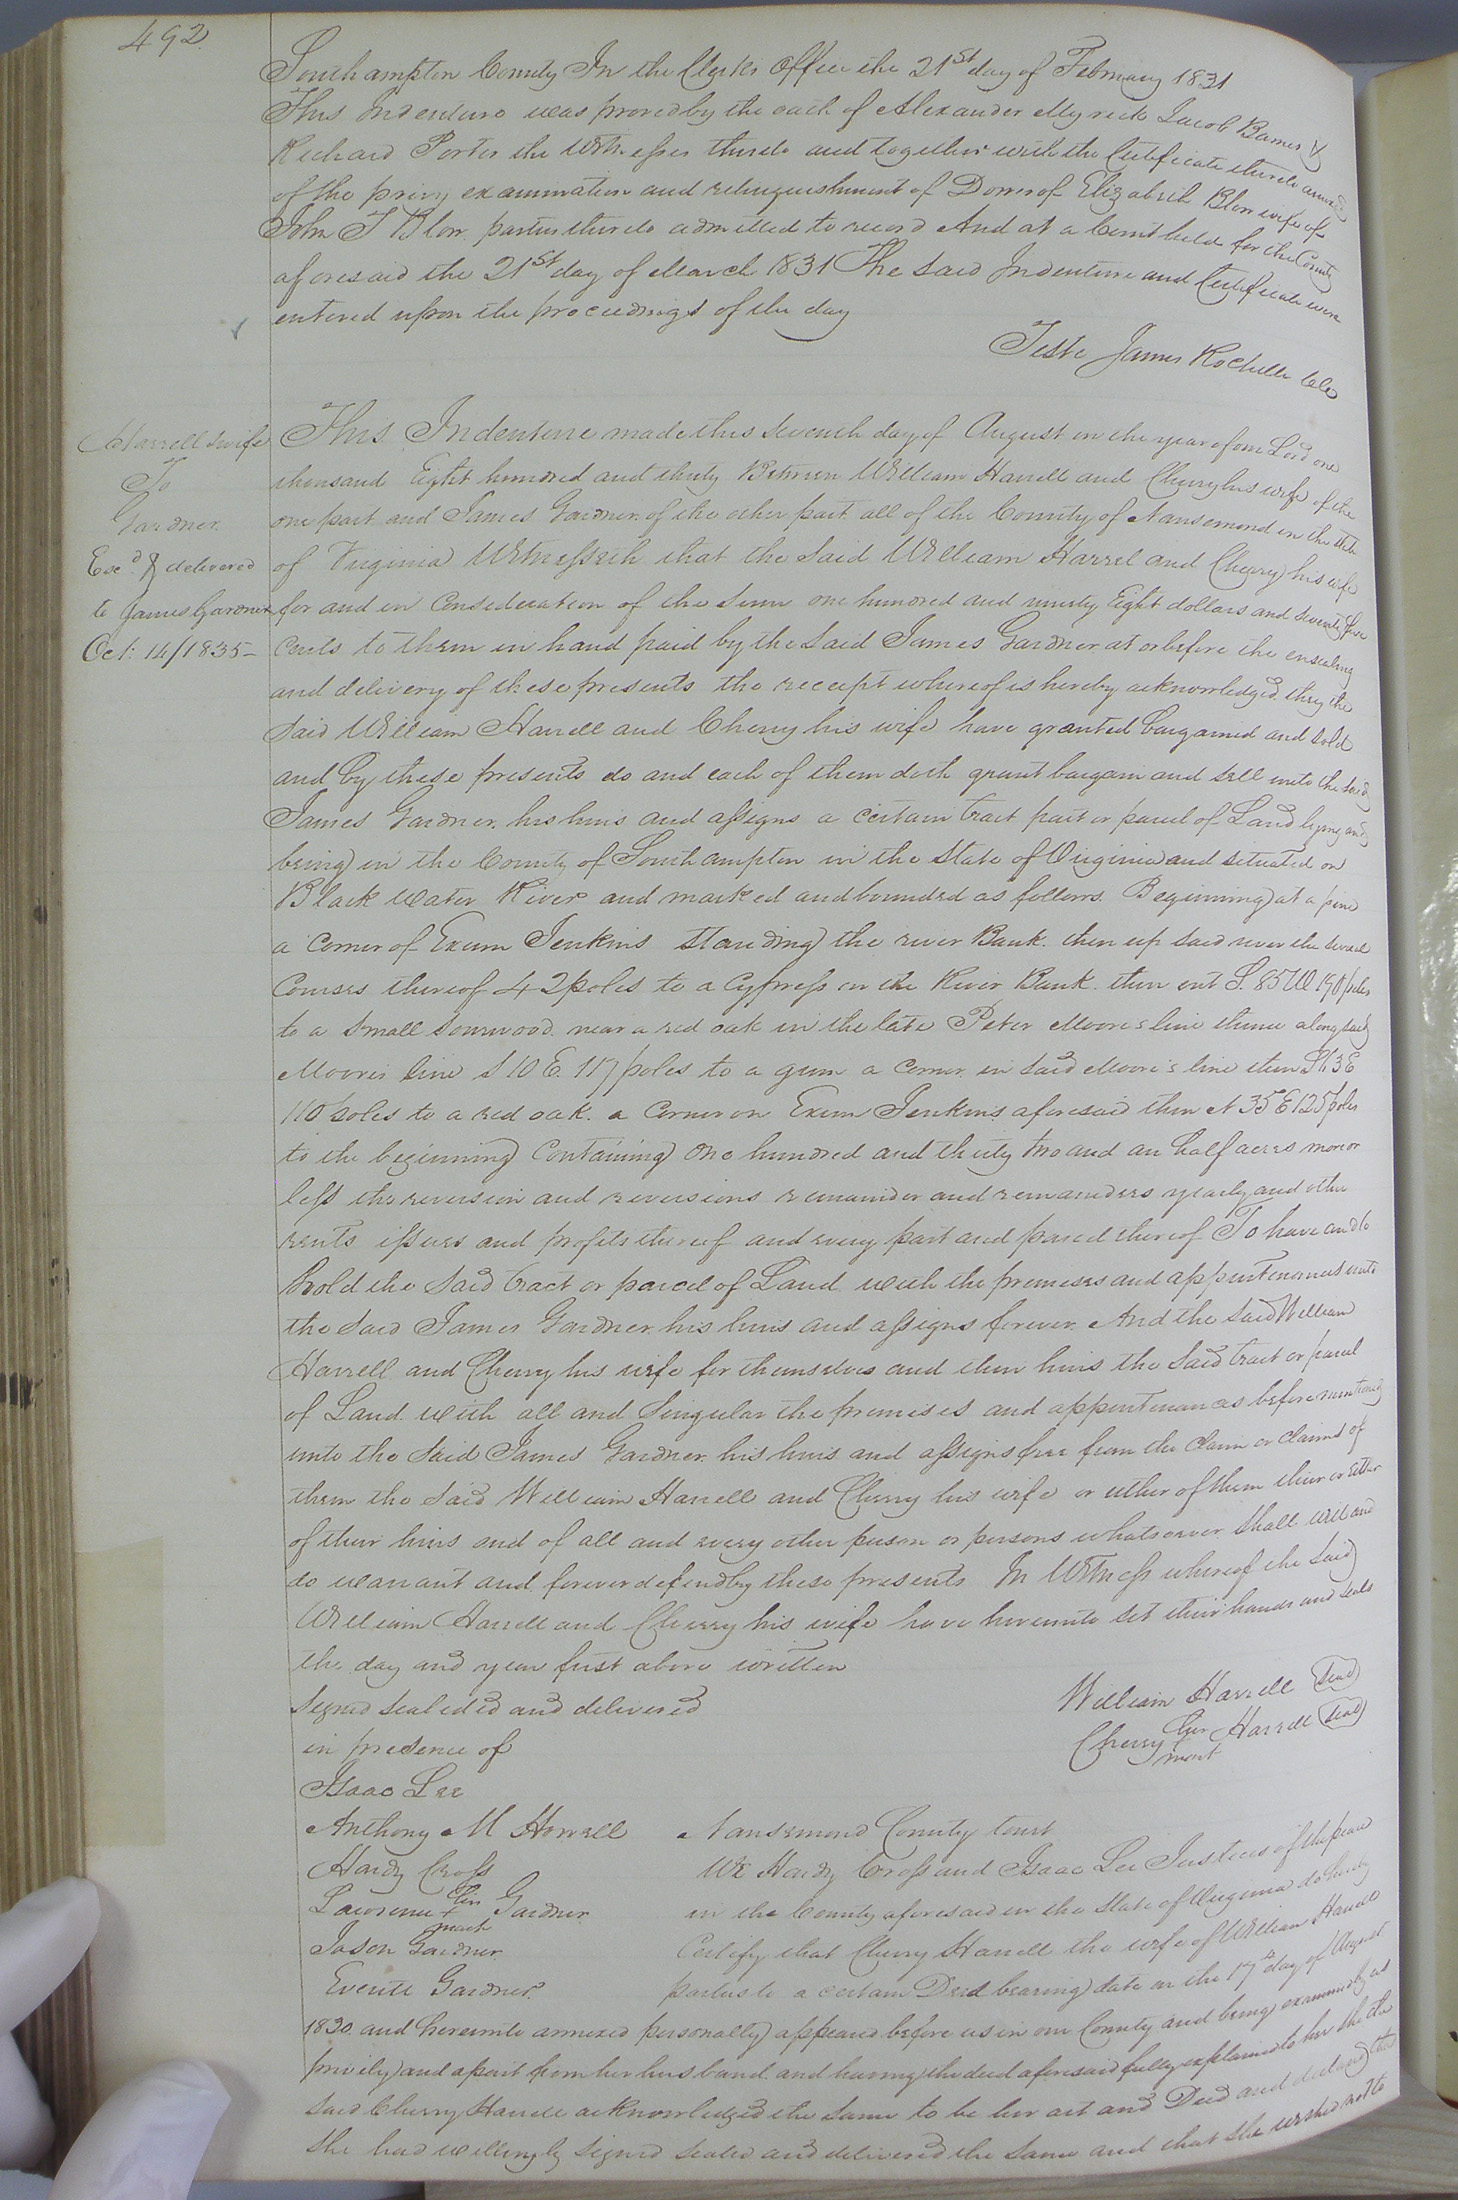 492.
Southampton County In the Clerks Office the 21st day of February 1831
This Indenture was proved by the oath of Alexander Myrick Jacob Barnes &
Richard Porter the Witnesses thereto and together with the Certificate thereto annexed
of the privy examination and relinquishment of Dower of Elizabeth Blow wife of
John T Blow parties thereto admitted to record And at a Court held for the County
aforesaid the 21st day of March 1831 The said Indenture and Certificate were
entered upon the proceedings of the day
Teste James Rochelle Clk
Harrell & wife
To
Gardner
Exd. & delivered
to James Gardner
Oct: 14/1835-
This Indenture made this Seventh day of August in the year of our Lord one
thousand Eight hundred and thirty Between William Harrell and Cherry his wife of the
one part and James Gardner of the other part all of the County of Nansemond in the State
of Virginia Witnesseth that the said William Harrel and Cherry his wife
for and in Consideration of the sum one hundred and ninety Eight dollars and seventy five
cents to them in hand paid by the said James Gardner at or before the ensealing
and delivery of these presents the receipt whereof is hereby acknowledged they the
said William Harrell and Cherry his wife have granted bargained and sold
and by these presents do and each of them doth grant bargain and sell unto the said
James Gardner his heirs and assigns a certain tract part or parcel of Land lying and
being in the County of Southampton in the State of Virginia and situated on
Black Water River and marked and bounded as follows. Beginning at a pine
a corner of Exum Jenkins standing the river Bank. then up said river the several
Courses thereof 42 poles to a Cypress on the River Bank. then out S. 85 W 190 poles
to a small sourwood near a red oak in the late Peter Moores line thence along said
Moores line S 10 E. 117 poles to a gum a corner in said Moore's line then E
110 poles to a red oak. a corner on Exum Jenkins aforesaid then N 35 E. 125 poles
to the beginning Containing one hundred and thirty two and an half acres more or
less the reversion and reversions remainder and remainders yearly and other
rents issues and profits thereof and every part and parcel thereof To have and to
hold the said tract or parcel of Land with the premises and appurtenances unto
the said James Gardner his heirs and assigns forever. And the said William
Harrell and Cherry his wife for themselves and their heirs the said tract or parcel
of Land with all and Singular the premises and appurtenances before mentioned
unto the said James Gardner his heirs and assigns free from the claim or claims of
them the said William Harrell and Cherry his wife or either of them their or either
of their heirs and of all and every other person or persons whatsoever shall will and
do warrant and forever defend by these presents In Witness whereof the said
William Harrell and Cherry his wife have hereunto set their hands and seals
the day and year first above written
Signed sealeded and delivered
in presence of
William Harrell (Seal)
Cherry her Harrell (Seal)
mark
Isaac Lee
Anthony M Howell
Hardy Cross
Lawrence his + Gardner
mark
Jason Gardner
Everitt Gardner
Nansemond County Court
We Hardy Cross and Isaac Lee Justices of the peace
in the County aforesaid in the State of Virginia do hereby
Certify that Cherry Harrell the wife of William Harrell
parties to a certain Deed bearing date on the 17th day of August
1830. and hereunto annexed personally appeared before us in our County and being examined by us
privily and apart from her husband and having the deed aforesaid fully explained to her she the
said Cherry Harrell acknowledged the same to be her act and Deed and declared that
she had willingly signed sealed and delivered the same and that she wished not to